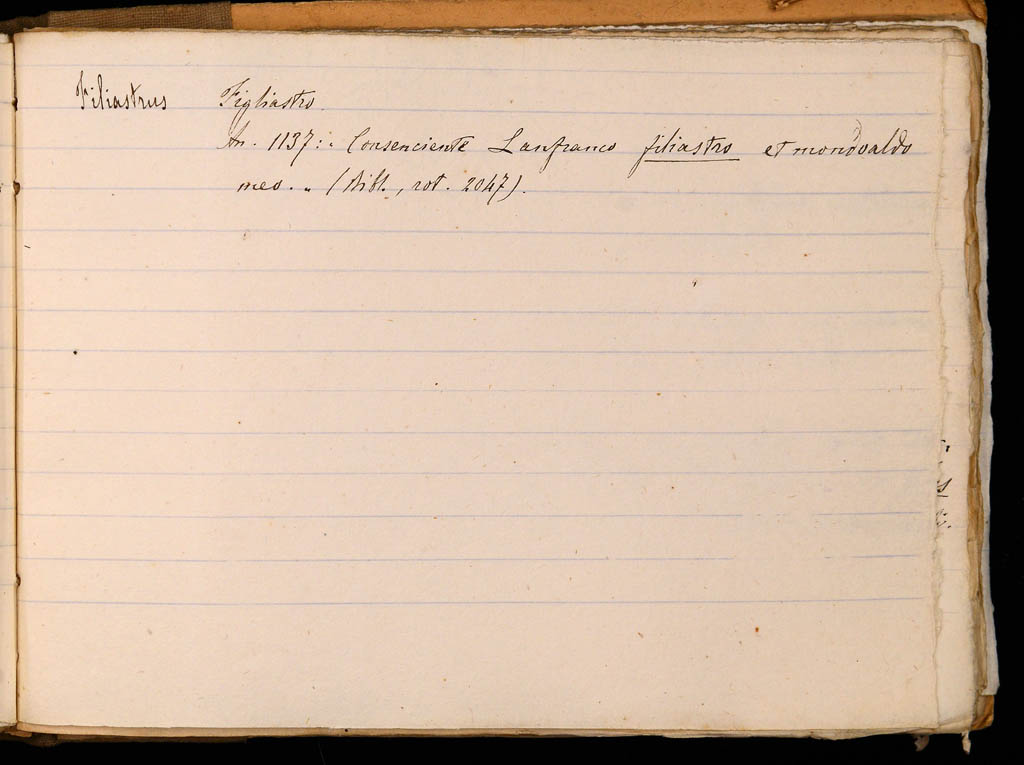 Filiastrus Figliastro.
An. 1137: „ Consenciente Lanfranco filiastro et mondoaldo
meo. „ (Bibl., rot. 2047).